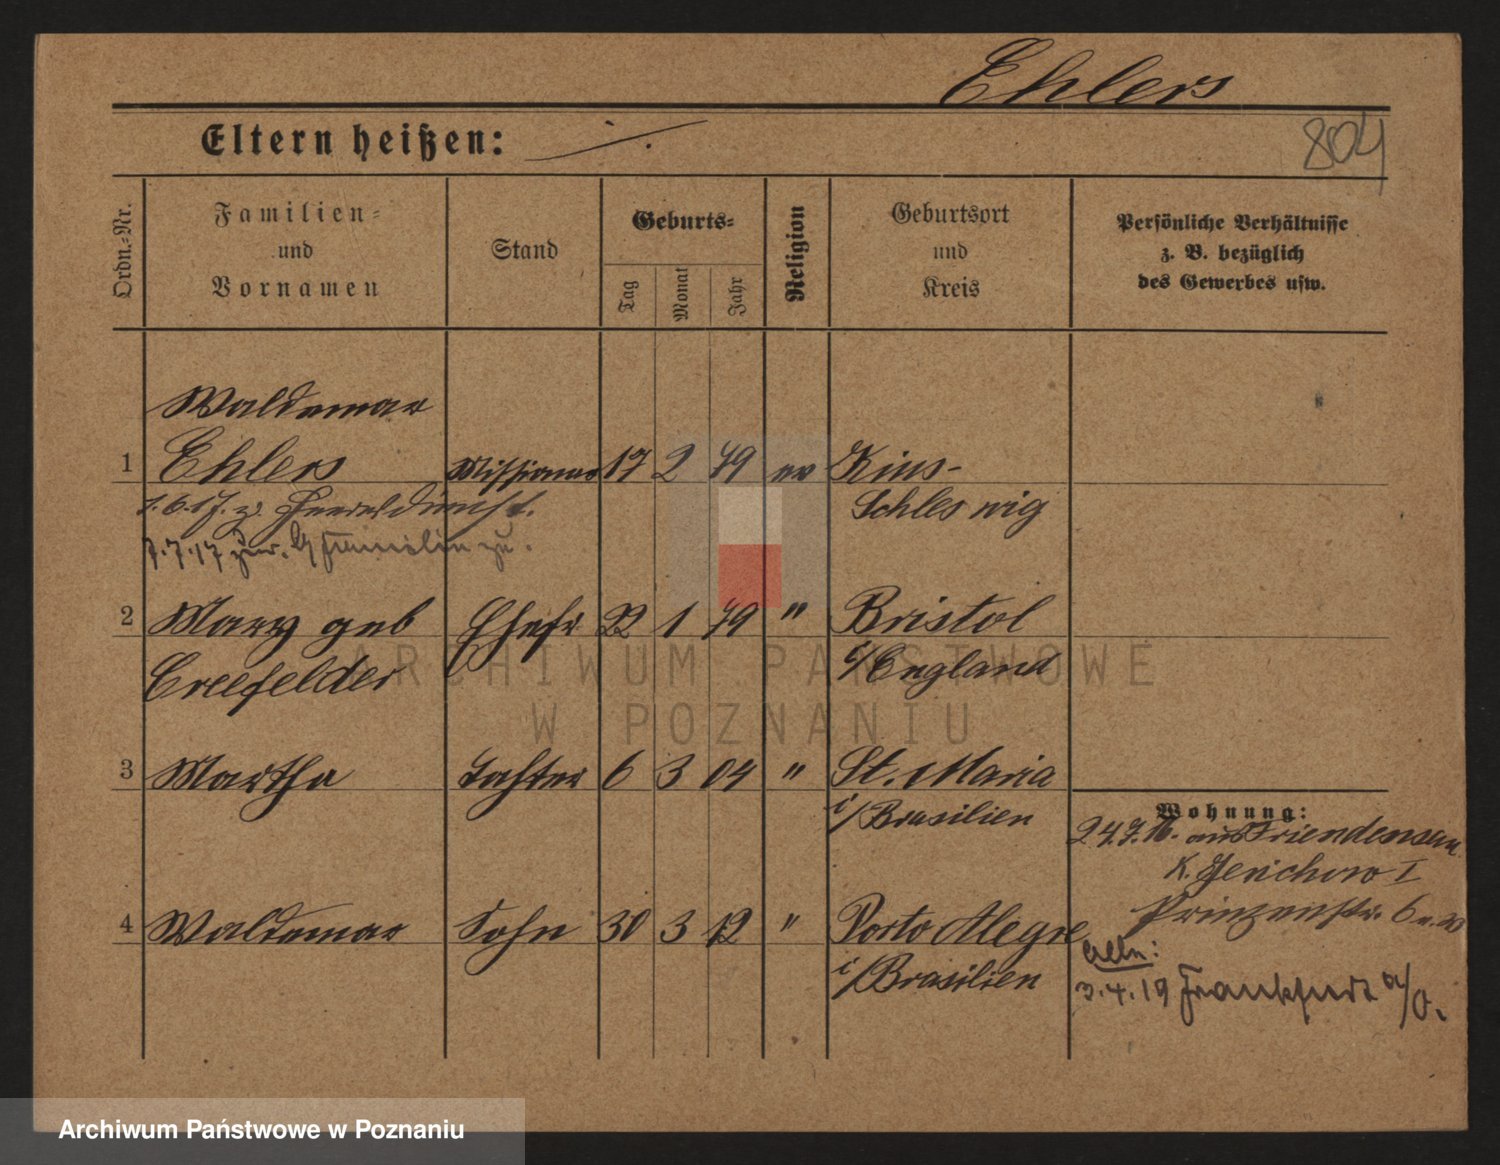 Ehlers
804
Eltern heißen: ./.
Ordn.-Nr.
Familien-
und
Vornamen
Stand
Geburts-
Tag
Monat
Jahr
Religion
Geburtsort
und
Kreis
Persönliche Verhältnisse
z. B. bezüglich
des Gewerbes usw.
Waldemar
1 Ehlers Missionar 17 2 79 ev Kius-
1.6.17. z. Heeresdienst. Schleswig
7.7.17 zur. v. zu.
2 Mary geb Ehefr 22 1 79 " Bristol
Creefelder i/England
3 Martha Tochter 6 3 04 " St. Maria
i/Brasilien
Wohnung:
24.7.16. aus
K. Jerichow I
4 Waldemar Sohn 30 3 12 " Porto Alegre
Prinzenstr. 6
i/Brasilien
3.4.19 Frankfurt a/O.
ARCHIWUM PAŃSTWOWE
W POZNANIU
Archiwum Państwowe w Poznaniu